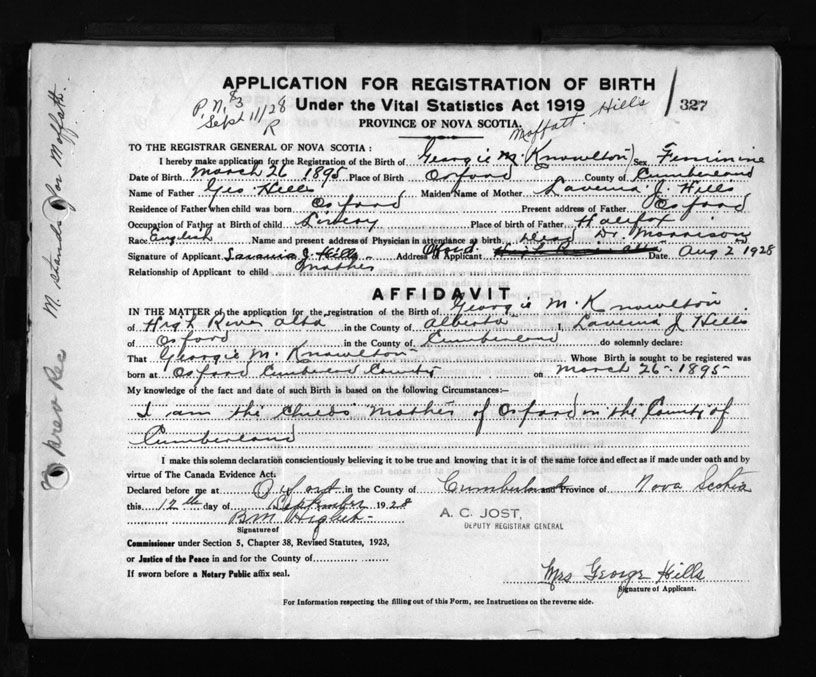 APPLICATION FOR REGISTRATION OF BIRTH
P.N. $3 Under the Vital Statistics Act 1919 327
Sept 11/28 R PROVINCE OF NOVA SCOTIA.
Moffatt Hills
TO THE REGISTRAR GENERAL OF NOVA SCOTIA :
I hereby make application for the Registration of the Birth of Georgie M. Knowlton Sex Feminine
Date of Birth March 26 1895 Place of Birth Oxford County of Cumberland
Name of Father Geo Hills Maiden Name of Mother Lavenia J. Hills
Residence of Father when child was born Oxford Present address of Father Oxford
Occupation of Father at Birth of child Place of birth of Father Halifax
Race English Name and present address of Physician in attendance at birth Dr. Morrison
Signature of Applicant Lavania J. Hills Address of Applicant Oxford. Date Aug 2 1928
Relationship of Applicant to child Mother
AFFIDAVIT
IN THE MATTER of the application for the registration of the Birth of Georgie M. Knowlton
of High River Alta in the County of Alberta I, Lavenia J Hills
of Oxford in the County of Cumberland do solemnly declare:
That Georgie M. Knowlton Whose Birth is sought to be registered was
born at Oxford Cumberland County on March 26 - 1895
My knowledge of the fact and date of such Birth is based on the following Circumstances:—
I am the Childs Mother of Oxford in the County of
Cumberland
I make this solemn declaration conscientiously believing it to be true and knowing that it is of the same force and effect as if made under oath and by
virtue of The Canada Evidence Act:
Declared before me at Oxford in the County of Cumberland and Province of Nova Scotia
this 12th day of September 1928
B.M.
Signature of
A. C. JOST,
DEPUTY REGISTRAR GENERAL
Commissioner under Section 5, Chapter 38, Revised Statutes, 1923,
or Justice of the Peace in and for the County of
If sworn before a Notary Public affix seal.
Mrs George Hills
Signature of Applicant.
For Information respecting the filling out of this Form, see Instructions on the reverse side.
M. stands for Moffatt.